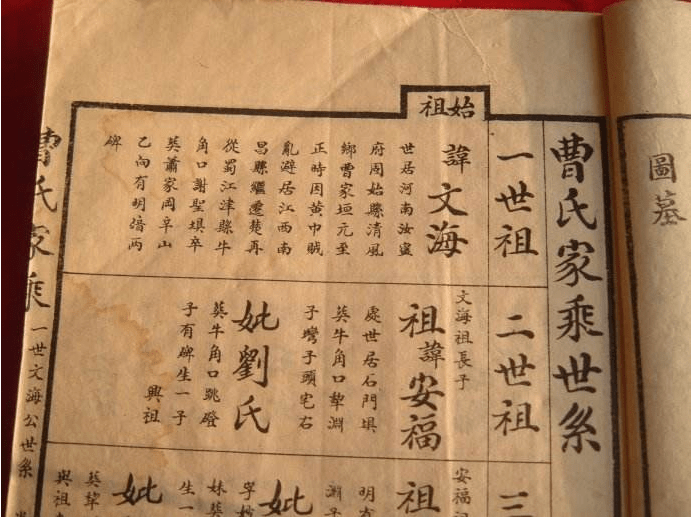 圖墓
曹氏家乘世系
始祖
一世祖
諱文海
世居河南汝寧
府固始縣清風
鄉曹家垣元至
正時因黃巾賊
亂避居江西南
昌縣繼遷楚再
從蜀江津縣牛
角口謝聖填卒
葬蕭家岡阜山
乙向有明堷兩
碑
二世祖
文海祖長子
祖諱安福
處世居石門填
葬牛角口犂淵
子灣子頭宅右
妣劉氏
葬牛角口跳磴
子有碑生一子
興祖
三
安福
祖
明有
淵子
妣
妹葬
生一
妣
葬
與祖
曹氏家乘
一世文海公世系